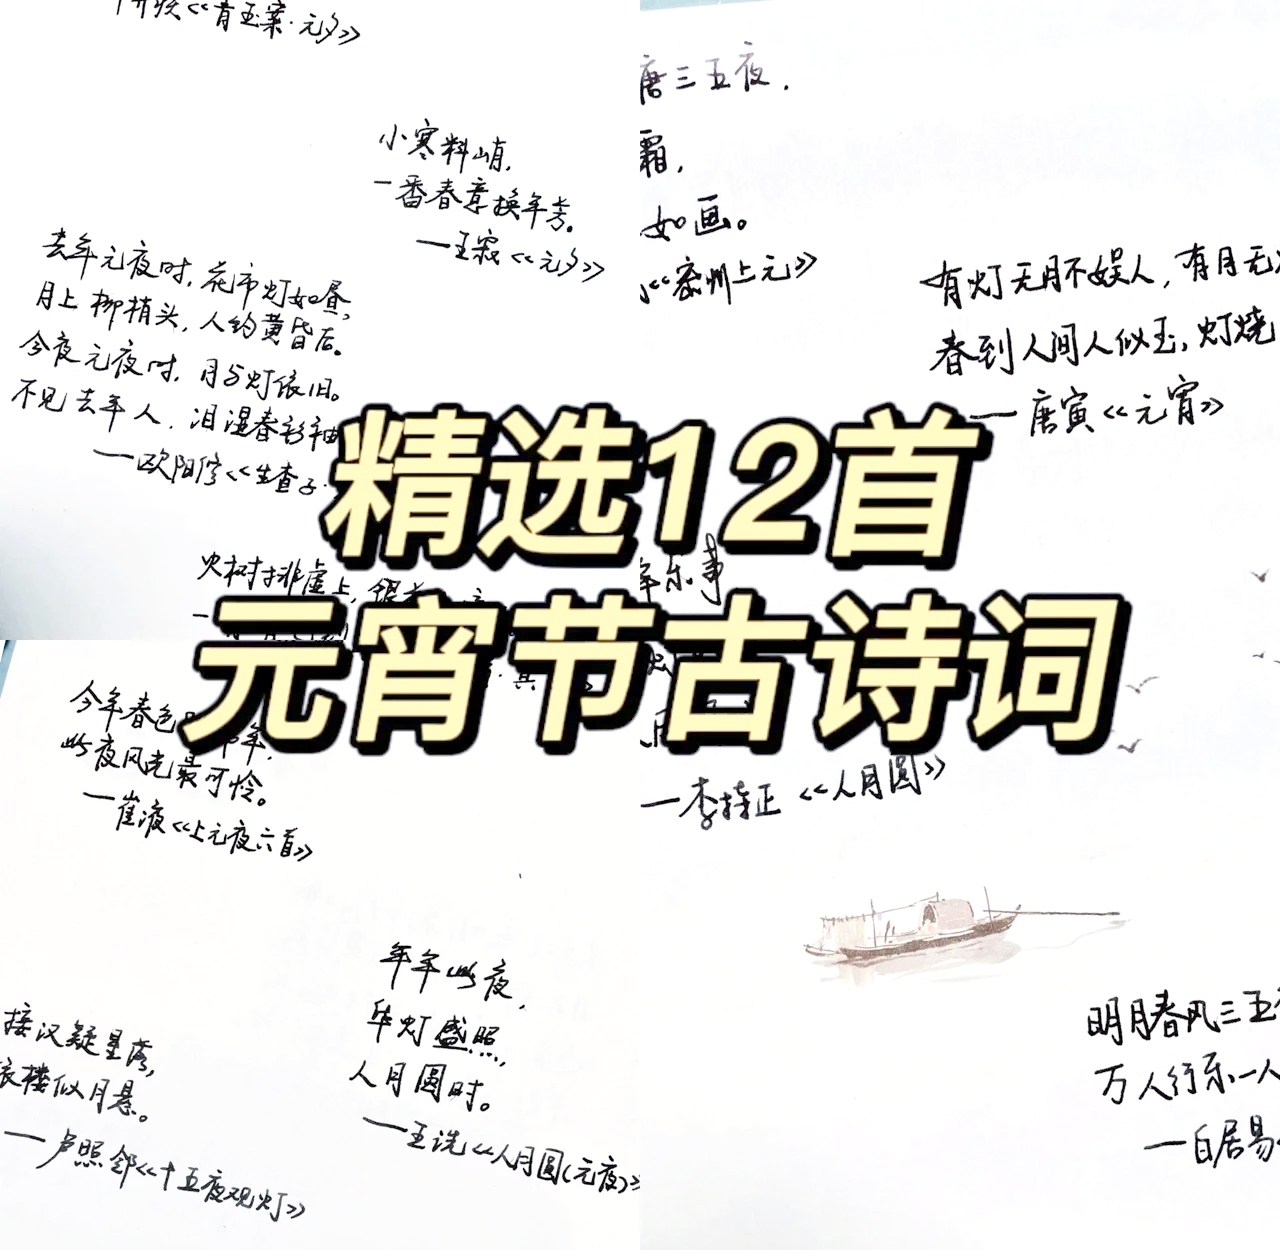 《青玉案·元夕》
小寒料峭,
一番春意换年芳。
—王寂《元夕》
去年元夜时,花市灯如昼,
月上柳梢头,人约黄昏后。
今夜元夜时,月与灯依旧。
不见去年人,泪湿春衫袖
—欧阳修《生查子·
火树排虚上,银
唐三五夜,
霜,
如画。
《密州上元》
有灯无月不娱人,有月无
春到人间人似玉,灯烧
—唐寅《元宵》
精选12首
元宵节古诗词
年乐事
—李持正《人月圆》
今年春色 年,
此夜风光最可怜。
—崔液《上元夜六首》
接汉疑星落,
依楼似月悬。
—卢照邻《十五夜观灯》
年年此夜,
华灯盛照,
人月圆时。
—王诜《人月圆(元夜)》
明月春风三五
万人行乐一人
—白居易